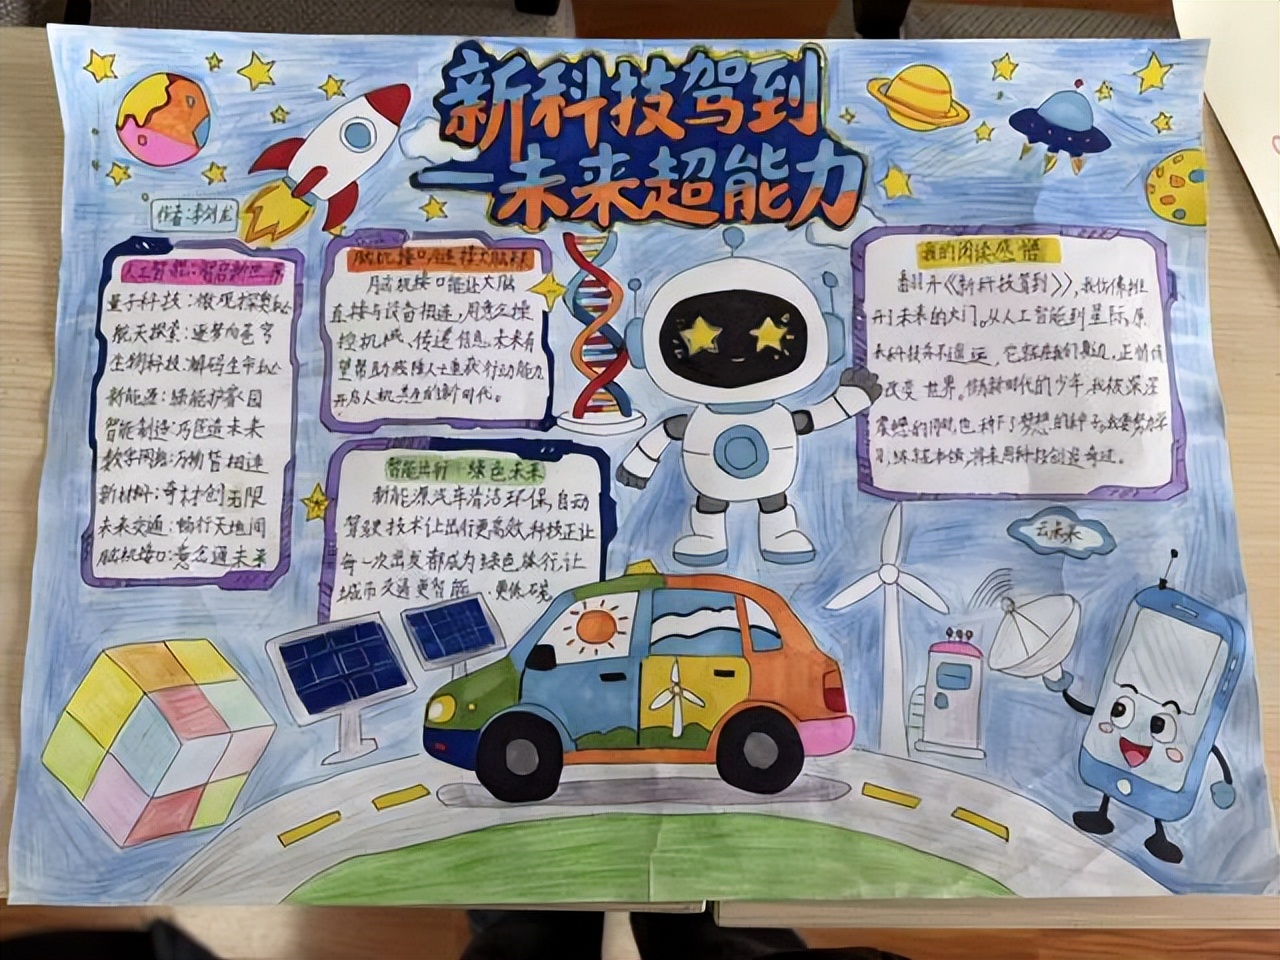 新科技驾到
一未来超能力
作者:李剑龙
人工智能:智启新世界
量子科技:微观探奥秘
航天探索:逐梦向苍穹
生物科技:解码生命秘
新能源:绿能护家园
智能制造:巧匠造未来
数字网络:万物皆相连
新材料:奇材创无限
未来交通:畅行天地间
脑机接口:意念通未来
脑机接口 链接大脑
脑机接口能让大脑
直接与设备相连,用意念操
控机械、传递信息,未来有
望帮助残障人士重获行动能力
开启人机共存的新时代。
智能出行 绿色未来
新能源汽车清洁环保,自动
驾驶技术让出行更高效,科技正让
每一次出发都成为绿色旅行,让
城市交通更智能、更低碳
我的阅读感悟
翻开《新科技驾到》,我仿佛推
开了未来的大门。从人工智能到星际,原
来科技并不遥远,它就在我们身边,正悄悄
改变世界。做新时代的少年,我被深深
震撼的同时,也种下了梦想的种子,我要努力学
习,练就本领,将来用科技创造奇迹。
云未来